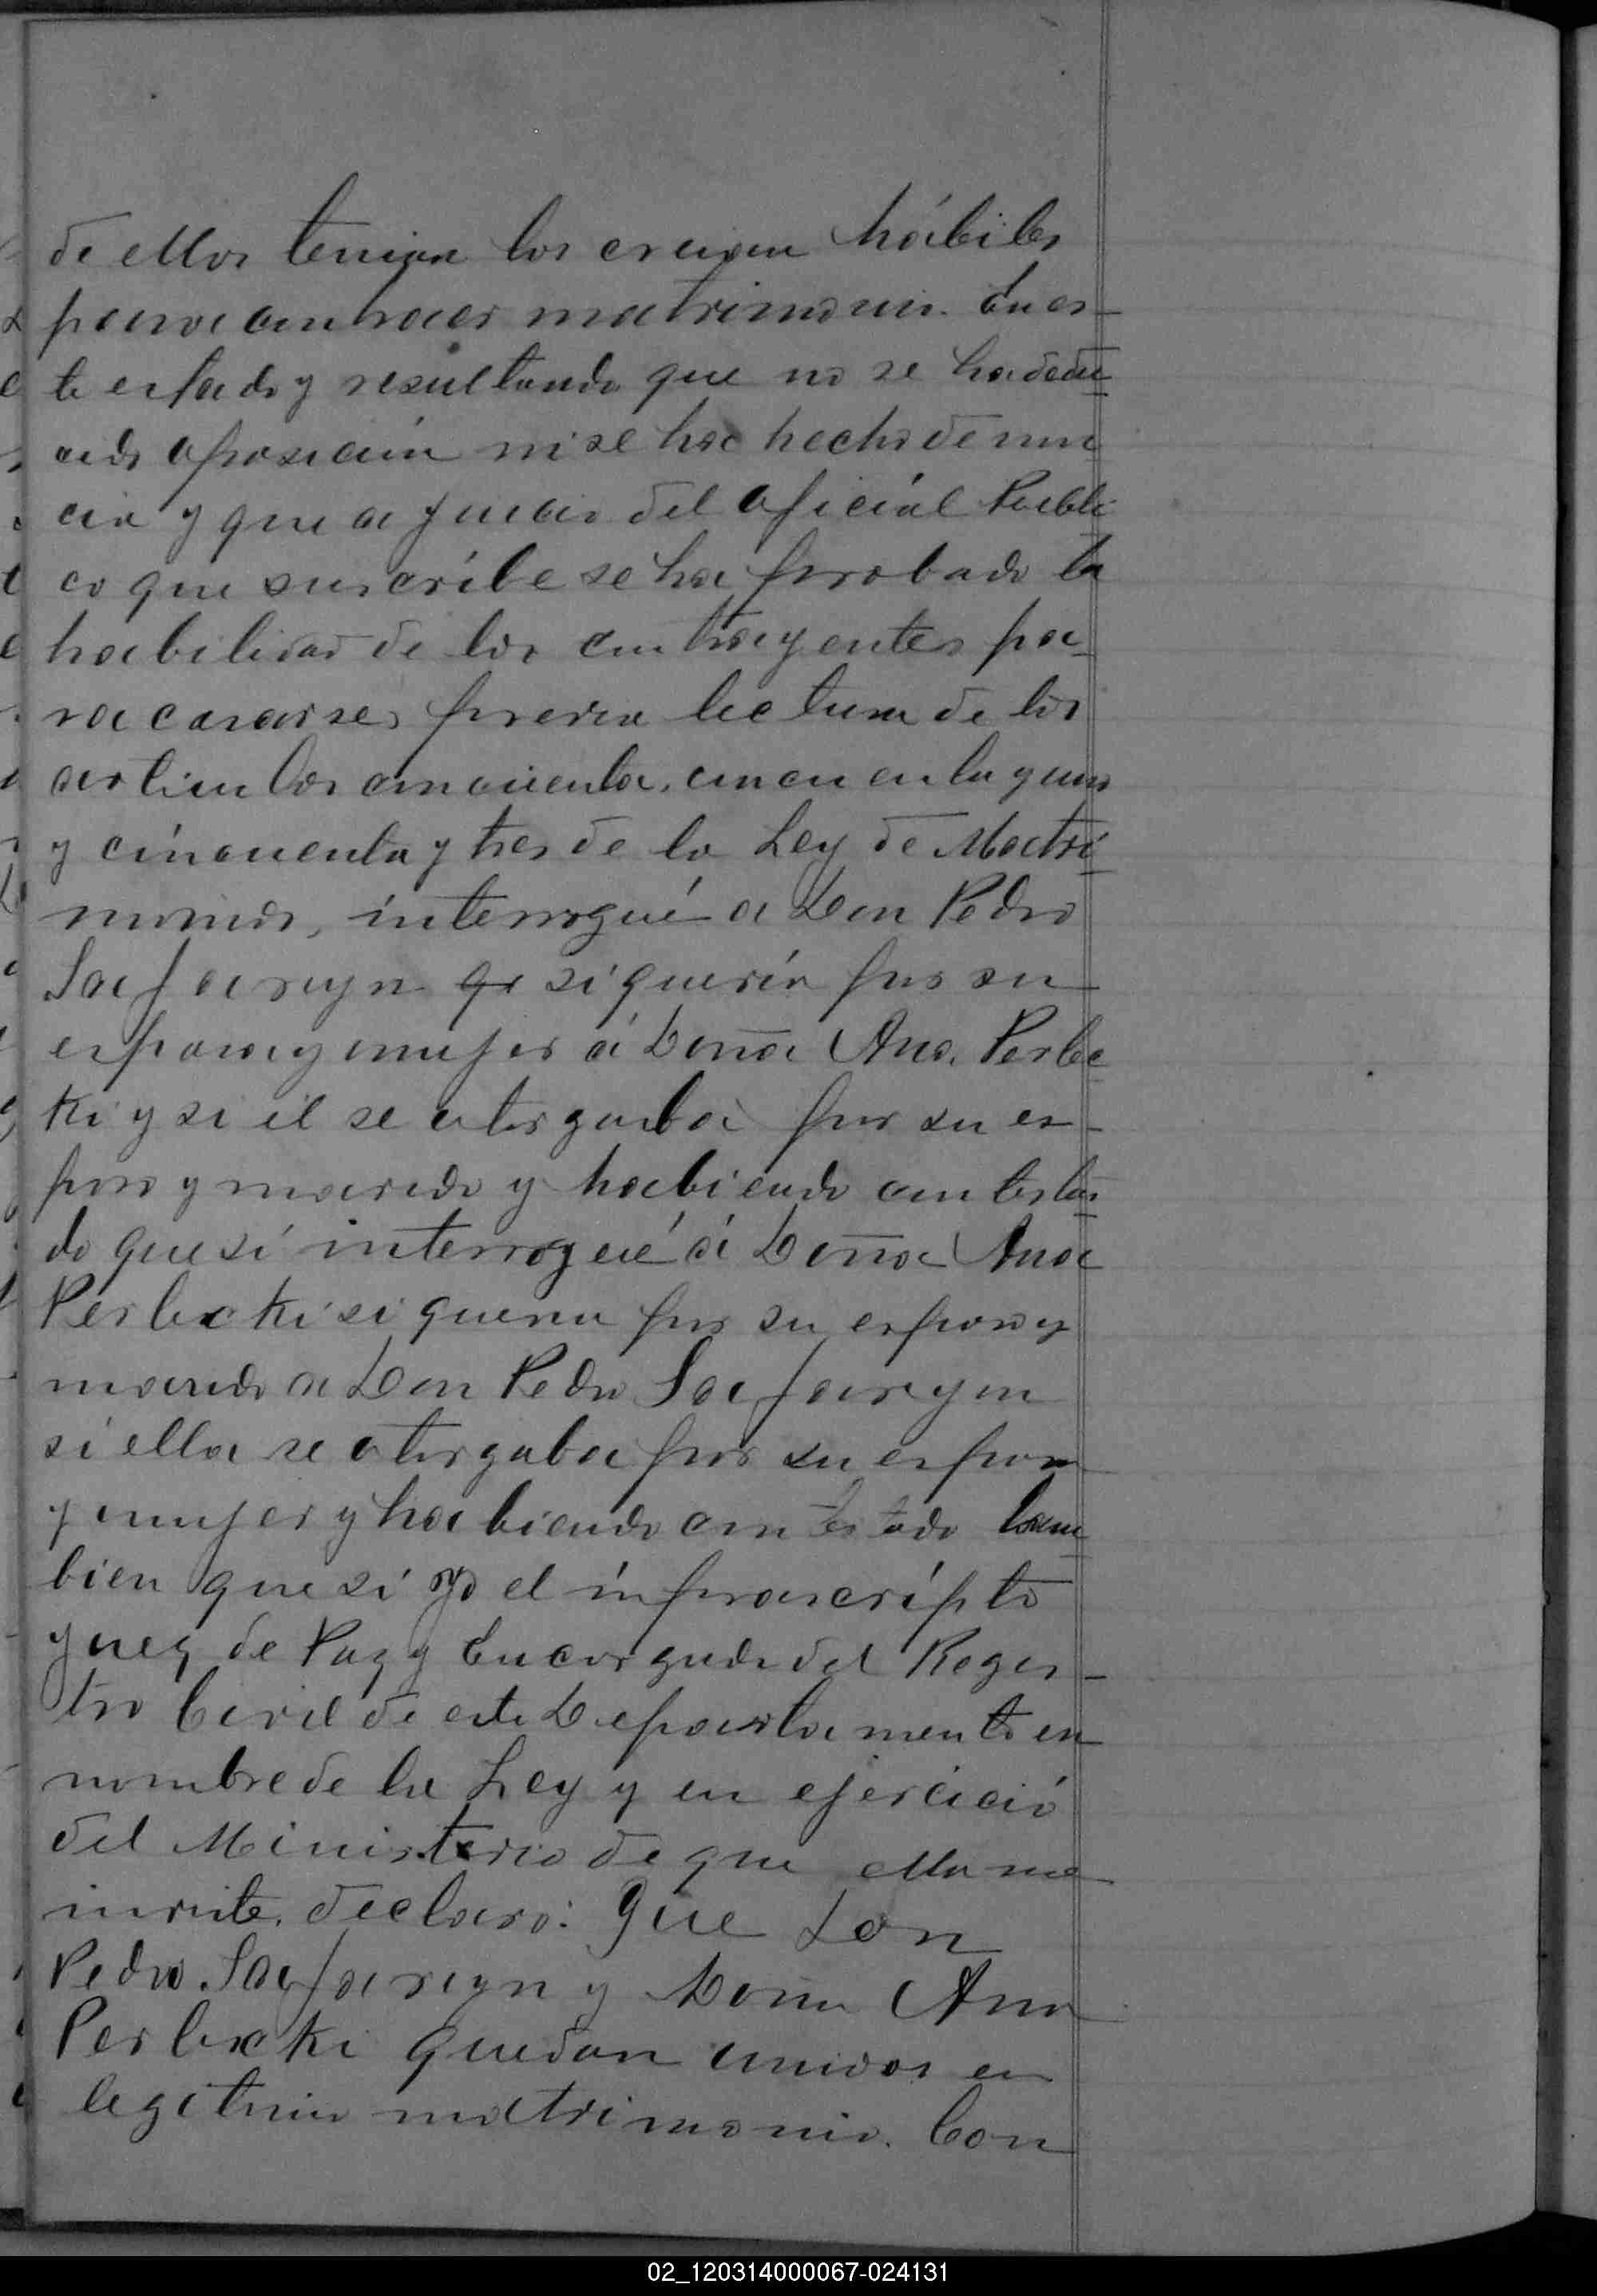 de ellos tenian los creian hábiles
para contraer matrimonio. En es-
te estado y resultando que no se ha dedu-
cido oposicion ni se ha hecho denun
cia y que a juicio del oficial Publi-
co que suscribe se ha probado la
habilidad de los contrayentes pa-
ra casarse, previa lectura de los
articulos cincuenta, cincuenta y uno
y cincuenta y tres de la Ley de Matri-
monio, interrogué a Don Pedro
Safaryn qe si queria por su
esposa y mujer á Doña Ana Perbe
ki y si él se otorgaba por su es-
poso y marido y habiendo contesta-
do que sí interrogué á Doña Ana
Perbecki si queria por su esposo y
marido a Don Pedro Safaryn
si ella se otorgaba por su esposa
y mujer y habiendo contestado tam-
bien que sí yo el infrascripto
Juez de Paz y Encargado del Regis-
tro Civil de este Departamento en
nombre de la Ley y en ejercicio
del Ministerio de que ella me
inviste, declaro: Que Don
Pedro Safaryn y Doña Ana
Perbecki quedan unidos en
legitimo matrimonio. Con
02_120314000067-024131